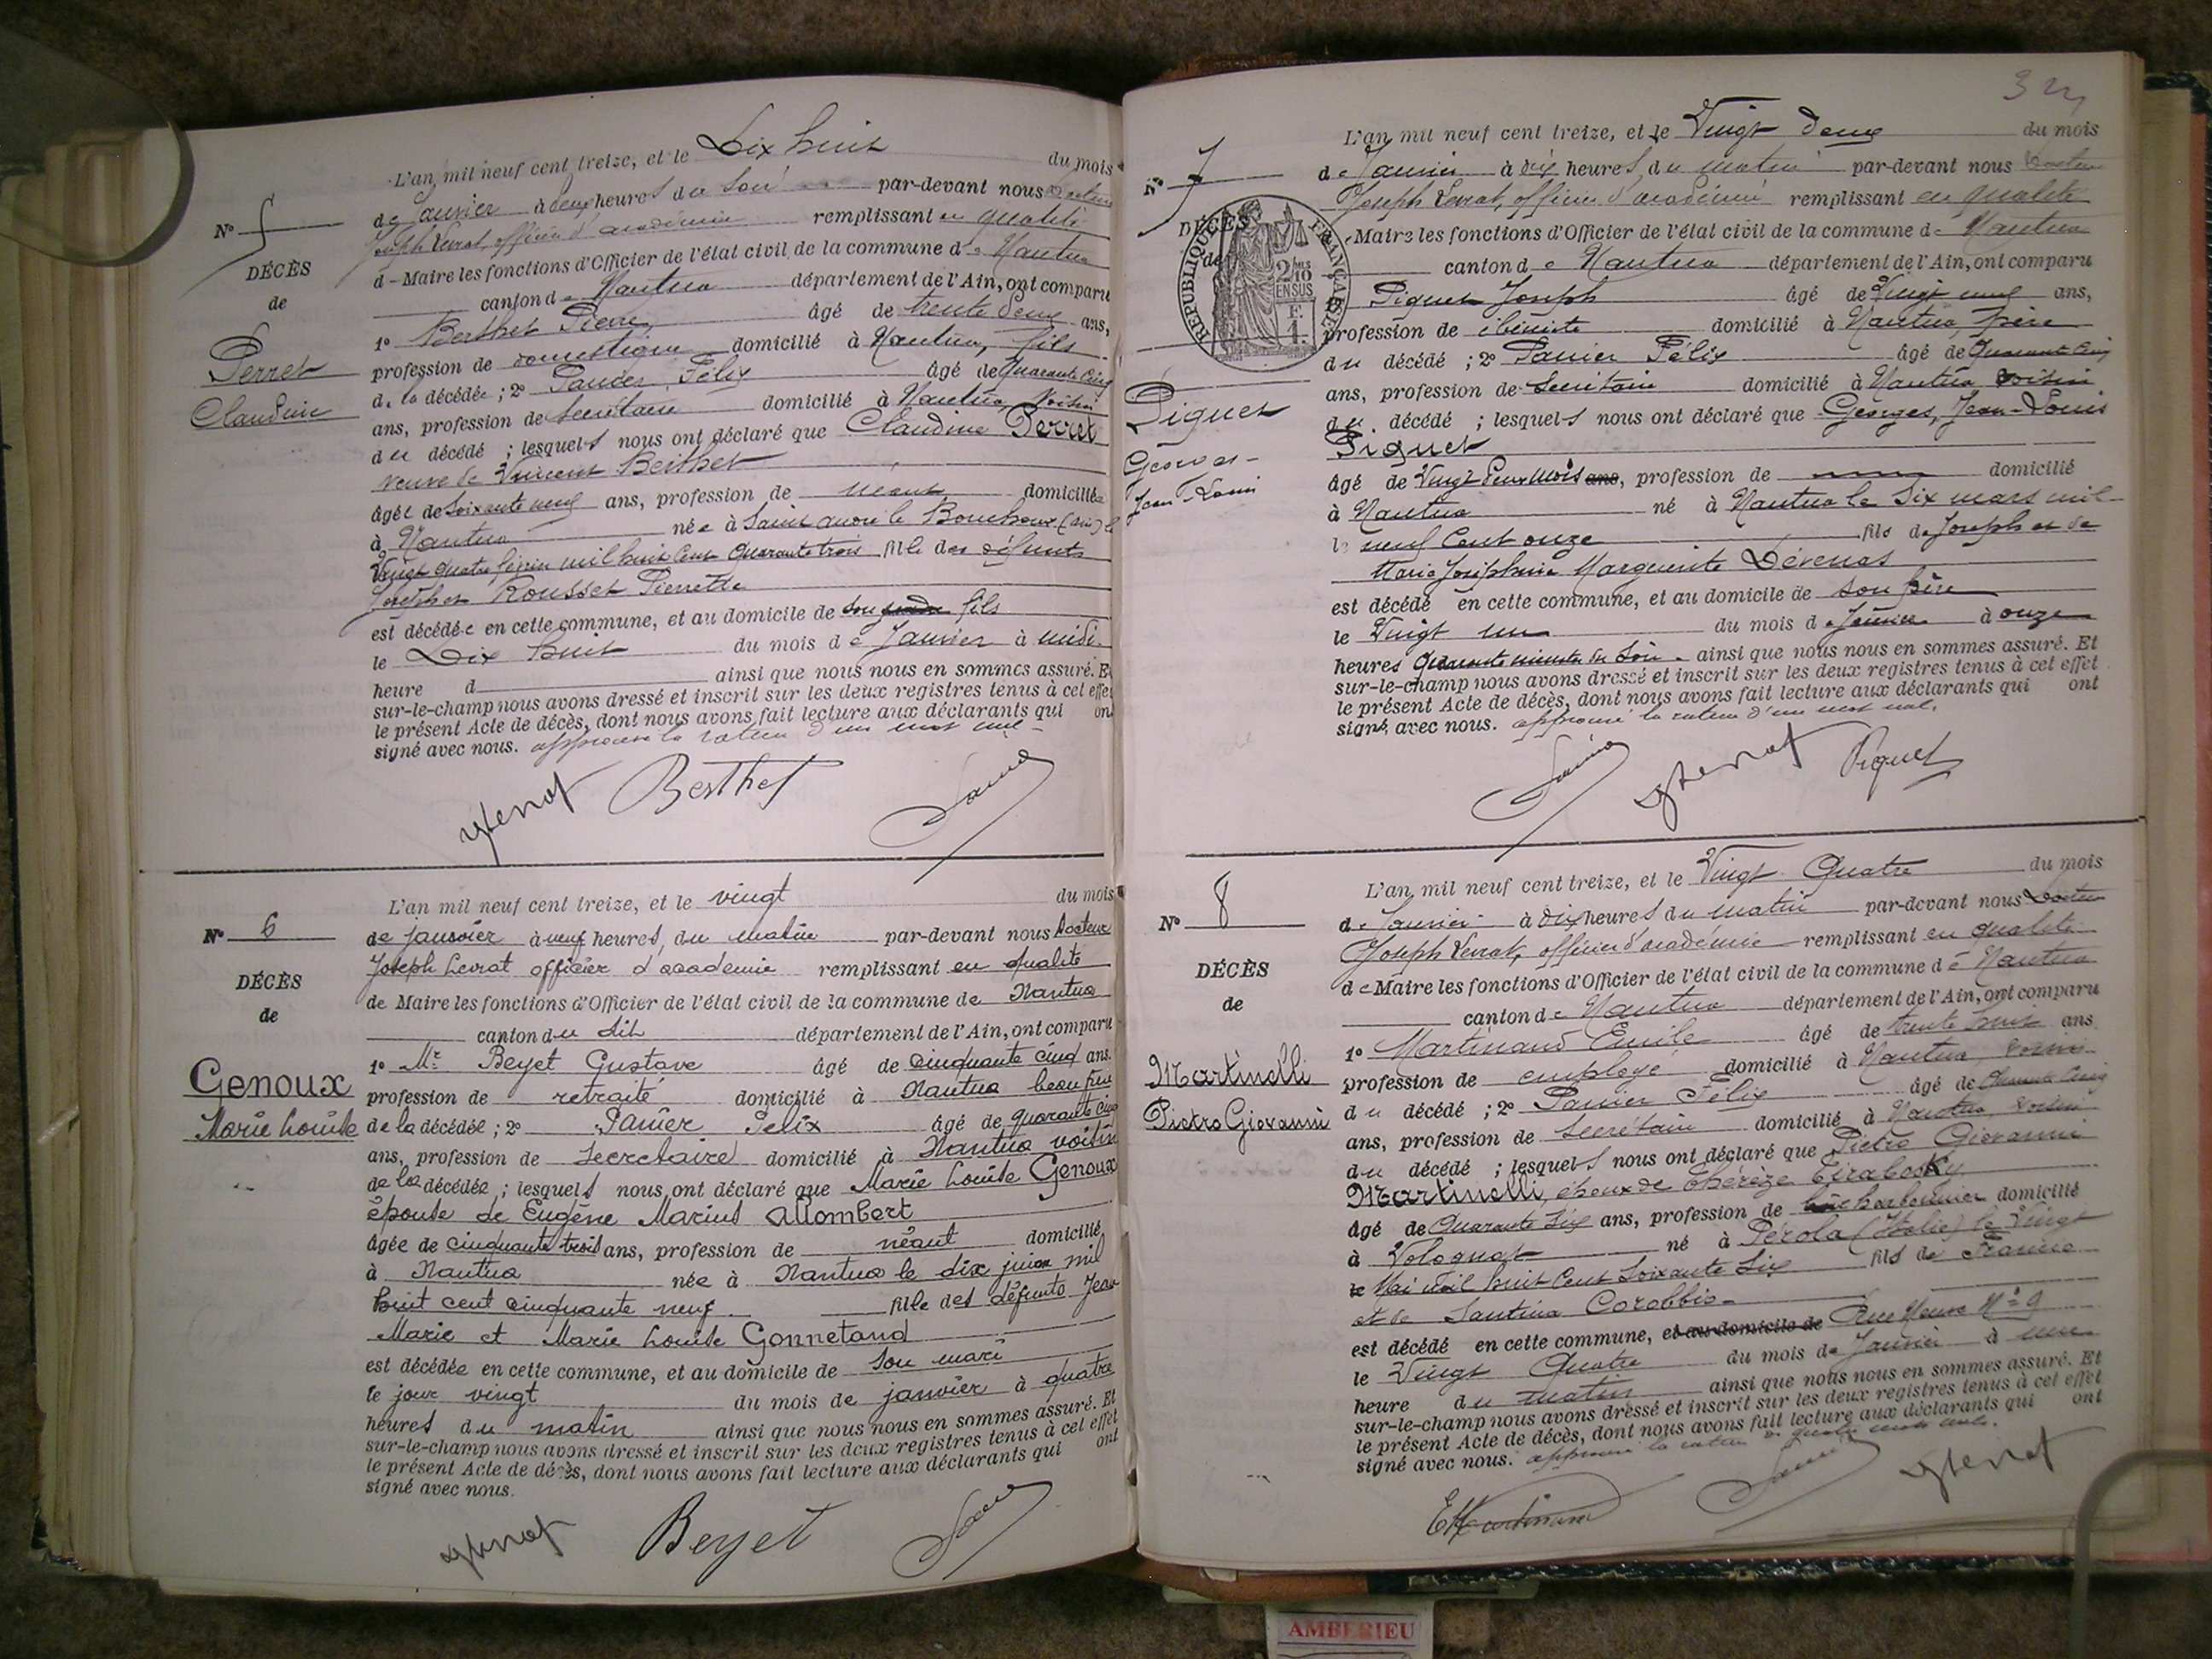 L'an mil neuf cent treize, et le Dix huit du mois
de Janvier à deux heures du soir par-devant nous Docteur
Joseph Levrat, officier d'académie remplissant en qualité
de Maire les fonctions d'Officier de l'état civil de la commune de Nantua
canton de Nantua département de l'Ain, ont comparu
1° Berthet Pierre âgé de trente deux ans,
profession de domestique domicilié à Nantua, fils
de la décédée ; 2° Panier Félix âgé de quarante cinq
ans, profession de Secrétaire domicilié à Nantua, voisin
du décédé ; lesquels nous ont déclaré que Claudine Perret
veuve de Vincent Berthet
âgée de soixante neuf ans, profession de néant domiciliée
à Nantua née à Saint André le Bouchoux (Ain) le
Vingt quatre février mil huit cent quarante trois fille des défunts
Joseph et Rousset Pierrette
est décédée en cette commune, et au domicile de son fils
le Dix huit du mois de Janvier à midi
heure d ainsi que nous nous en sommes assuré. Et
sur-le-champ nous avons dressé et inscrit sur les deux registres tenus à cet effet
le présent Acte de décès, dont nous avons fait lecture aux déclarants qui ont
signé avec nous. approuvé la rature d'un mot nul
Berthet
N° 5
DÉCÈS
de
Perret
Claudine
L'an mil neuf cent treize, et le vingt du mois
de janvier à neuf heures du matin par-devant nous Docteur
Joseph Levrat officier d'académie remplissant en qualité
de Maire les fonctions d'Officier de l'état civil de la commune de Nantua
canton du dit département de l'Ain, ont comparu
1° Mr Beyet Gustave âgé de cinquante cinq ans.
profession de retraité domicilié à Nantua beau frère
de la décédée ; 2° Panier Félix âgé de quarante cinq
ans, profession de Secrétaire domicilié à Nantua voisin
de la décédée ; lesquels nous ont déclaré que Marie Louise Genoux
épouse de Eugène Marius Allombert
âgée de cinquante trois ans, profession de néant domicilié
à Nantua née à Nantua le dix juin mil
huit cent cinquante neuf fille des défunts Jean
Marie et Marie Louise Gonnetand
est décédée en cette commune, et au domicile de son mari
le jour vingt du mois de janvier à quatre
heures du matin ainsi que nous nous en sommes assuré. Et
sur-le-champ nous avons dressé et inscrit sur les deux registres tenus à cet effet
le présent Acte de décès, dont nous avons fait lecture aux déclarants qui ont
signé avec nous.
Beyet
N° 6
DÉCÈS
de
Genoux
Marie Louise
L'an mil neuf cent treize, et le Vingt deux du mois
de Janvier à dix heures du matin par-devant nous Docteur
Joseph Levrat, officier d'académie remplissant en qualité
Maire les fonctions d'Officier de l'état civil de la commune de Nantua
canton de Nantua département de l'Ain, ont comparu
Piguet Joseph âgé de Vingt neuf ans,
profession de ébéniste domicilié à Nantua, père
du décédé ; 2° Panier Félix âgé de quarante cinq
ans, profession de Secrétaire domicilié à Nantua voisin
du décédé ; lesquels nous ont déclaré que Georges, Jean-Louis
Piguet
âgé de Vingt deux mois ans, profession de domicilié
à Nantua né à Nantua le Six mars mil
neuf cent onze fils de Joseph et de
Marie Joséphine Marguerite Dévenas
est décédé en cette commune, et au domicile de son père
le Vingt un du mois de Janvier à onze
heures quarante minutes du soir ainsi que nous nous en sommes assuré. Et
sur-le-champ nous avons dressé et inscrit sur les deux registres tenus à cet effet
le présent Acte de décès, dont nous avons fait lecture aux déclarants qui ont
signé avec nous. approuvé la rature d'un mot nul.
Piguet
N° 7
DÉCÈS
de
RÉPUBLIQUE FRANÇAISE
2/10 EN SUS
Piguet
Georges-
Jean-Louis
L'an mil neuf cent treize, et le Vingt Quatre du mois
de Janvier à dix heures du matin par-devant nous Docteur
Joseph Levrat, officier d'académie remplissant en qualité
de Maire les fonctions d'Officier de l'état civil de la commune de Nantua
canton de Nantua département de l'Ain, ont comparu
1° Martinand Emile âgé de trente huit ans
profession de employé domicilié à Nantua, voisin
du décédé ; 2° Panier Félix âgé de quarante cinq
ans, profession de Secrétaire domicilié à Nantua, voisin
du décédé ; lesquels nous ont déclaré que Pietro Giovanni
Martinelli, époux de Thérèze Tirabosky
âgé de Quarante Six ans, profession de charbonnier domicilié
à Volognat né à Pérola (Italie) le Vingt
le Mai mil huit cent soixante six fils de
et de Santina Corobbio
est décédé en cette commune, et au domicile de Rue Neuve N° 9
le Vingt Quatre du mois de Janvier à une
heure du matin ainsi que nous nous en sommes assuré. Et
sur-le-champ nous avons dressé et inscrit sur les deux registres tenus à cet effet
le présent Acte de décès, dont nous avons fait lecture aux déclarants qui ont
signé avec nous. approuvé la rature de quatre mots nuls.
N° 8
DÉCÈS
de
Martinelli
Pietro Giovanni
AMBERIEU